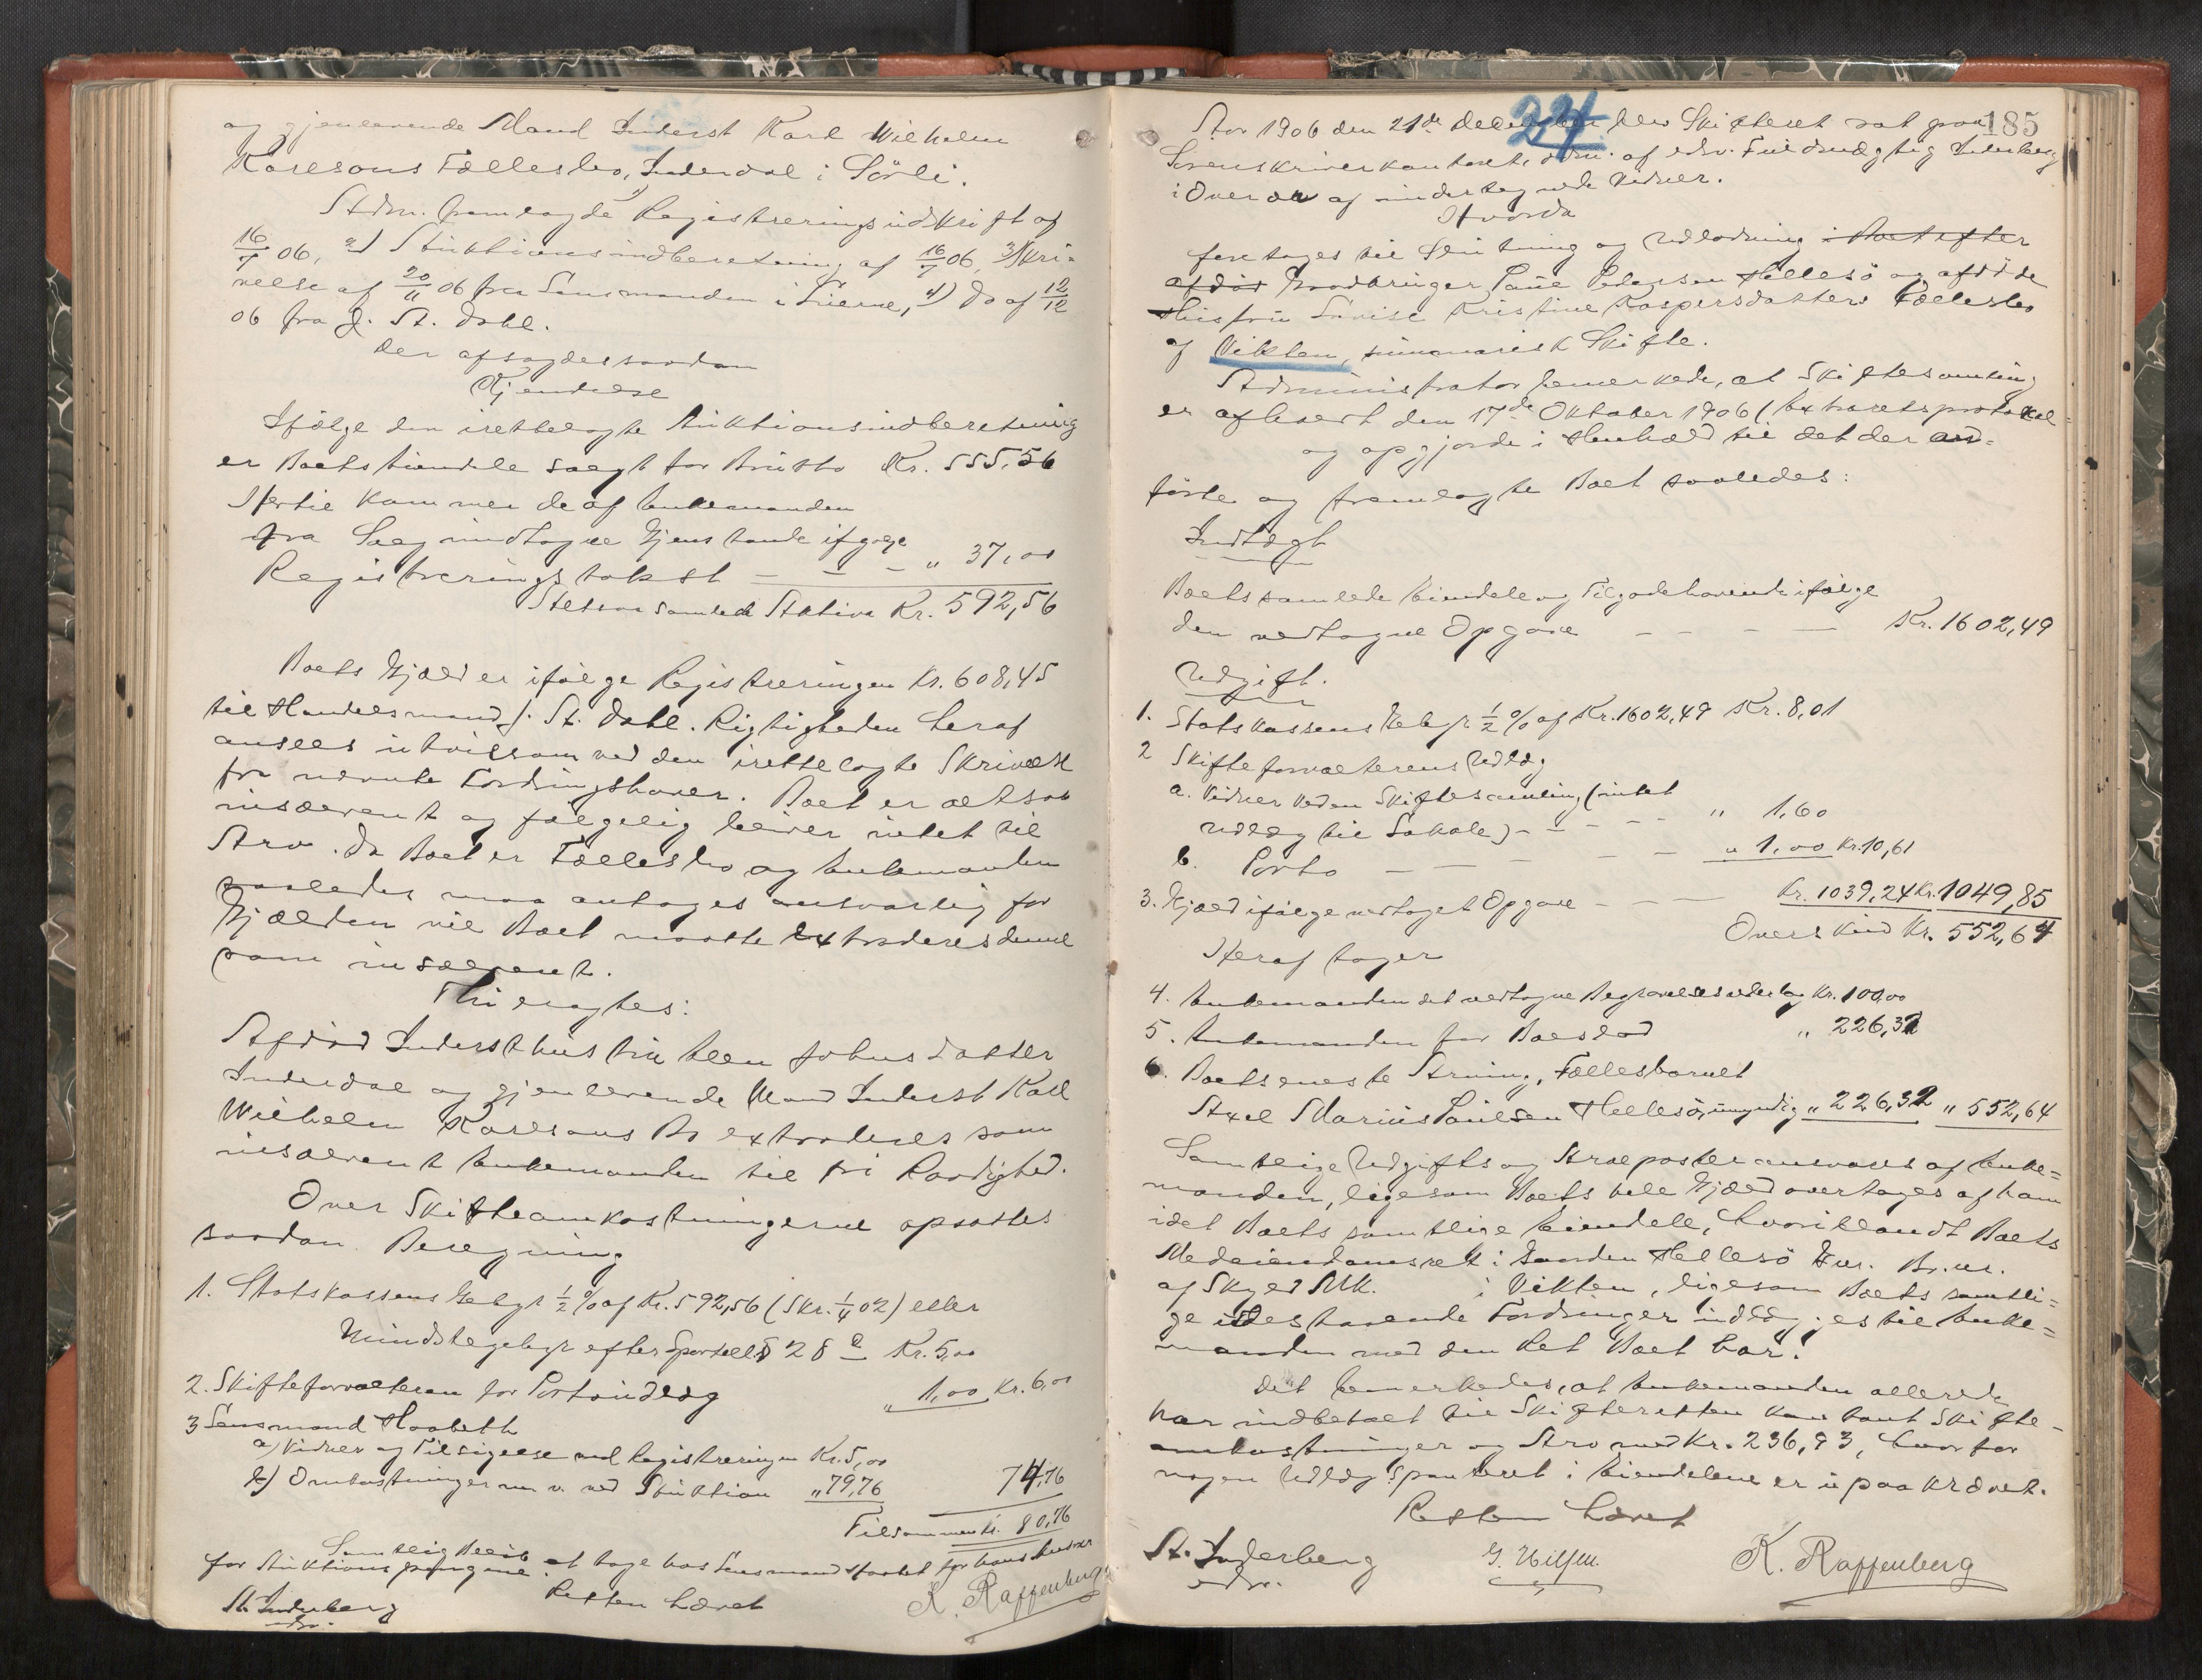 og gjenlevende Mand Inderst Karl Wilhelm
Karlsons Fællesbo, Inderdal i Sörli.
Adm. fremlagde 1) Registreringsudskrift af
16/7 06, 2) Auktionsindberetning af 16/7 06, 3) Skri-
velse af 20/11 06 fra Lensmanden i Lierne, 4) Do af 12/12
06 fra J. St. Dahl.
Der afsagdes saadan
Kjendelse
Ifølge den irettelagte Auktionsindberetning
er Boets Eiendele solgt for Brutto Kr. 555,56
Hertil kommer de af Enkemanden
fra Salg undtagne Gjenstande ifølge
Registreringstakst — — — " 37,00
Altsaa samlede Aktiva Kr. 592,56
Boets Gjæld er ifølge Registreringen Kr. 608,45
til Handelsmand J. St. Dahl. Rigtigheden heraf
ansees utvilsom ved den irettelagte Skrivelse
fra nævnte Fordringshaver. Boet er altsaa
insolvent og følgelig bliver intet til
Arv. Da Boet er Fællesbo og Enkemanden
saaledes maa antages ansvarlig for
Gjælden vil Boet maatte extraderes denne
som insolvent.
Thi eragtes:
Afdød Indersthustru Ellen Johnsdatter
Inderdal og gjenlevende Mand Inderst Karl
Wilhelm Karlsons Bo extraderes som
insolvent Enkemanden til fri Raadighed.
Over Skifteomkostningerne opsattes
saadan Beregning
1. Statskassens Gebyr 1/2 % af Kr. 592,56 (Skr. 1/4 02) eller
Mindstegebyr efter Sportell § 28 Kr. 5,00
2. Skifteforvalteren for Portoudlæg " 1,00 Kr. 6,00
3 Lensmand
a) Vidner og Tilsigelse ved Registreringen Kr. 5,00
b) Omkostninger m. v. ved Auktion " 79,76 74,76
Tilsammen Kr. 80,76
at tage hos Lensmand for hans
for Auktionspengene.
Retten hævet
A. Inderberg
edsv.
K. Raffenberg
24
185
Aar 1906 den 21de December blev Skifteret sat paa
Sorenskriverkontoret, adm. af edsv. Fuldmægtig Inderberg
i Overvær af undertegnede Vidner.
Hvorda
foretages til Slutning og Udlodning i Boet efter
afdød Gaardbruger Paul Pedersen Hellesö og afdöde
Hustru Lovise Kristine Kaspersdatters Fællesbo
af Vikten, summarisk Skifte.
Administrator bemerkede, at Skiftesamling
er afholdt den 17de Oktober 1906 (Extraretsprotokol-
og opgjorde i Henhold til det der an-
förte og fremlagte Boet saaledes:
Indtægt
Boets samlede Eiendele og Tilgodehavende ifølge
den vedtagne Opgave — — — — Kr. 1602,49
Udgift.
1. Statskassens Gebyr 1/2 % af Kr. 1602,49 Kr. 8,01
2 Skifteforvalterens Udlæg
a. Vidner ved en Skiftesamling (intet
Udlæg til Lokale) — — — — " 1,60
b. Porto — — — — " 1,00 Kr. 10,61
3. Gjæld ifølge vedtaget Opgave — — — Kr. 1039,24 Kr. 1049,85
Overskud Kr. 552,64
Heraf tager
4. Enkemanden det vedtagne Begravelsesudlæg Kr. 100,00
5. Enkemanden for Boeslod " 226,32
6. Boets eneste Arving, Fællesbarnet
Axel Marius Paulsen Hellesö, umyndig " 226,32 " 552,64
Samtlige Udgifts og Arveposter ansvares af Enke-
manden, ligesom Boets hele Gjæld overtages af ham
idet Boets samtlige Eiendele, hvoriblandt Boets
Medeiendomsret i Gaarden Hellesö Gnr. Br.nr.
af Skyld Mk. i Vikten, ligesom Boets samtli-
ge udestaaende Fordringer udlægges til Enke-
manden med den Ret Boet har.
Det bemerkedes, at Enkemanden allerede
har indbetalt til Skifteretten kontant Skifte-
omkostninger og Arv med Kr. 236,93, hvorfor
nogen Udlægspanteret i Eiendelene er upaakrævet.
Retten hævet
A. Inderberg
edsv.
K. Raffenberg